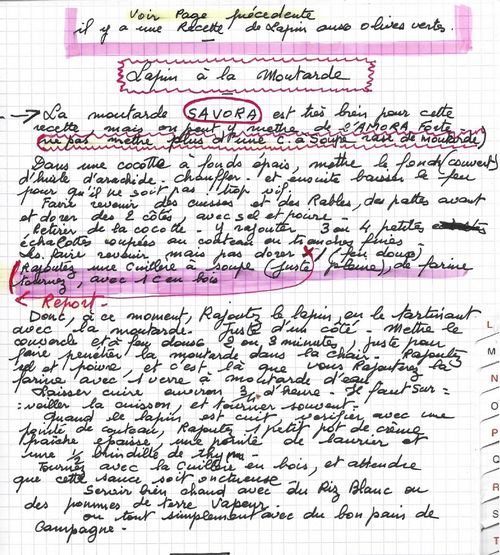 Voir Page précédente
il y a une Recette de Lapin aux olives vertes.
Lapin à la Moutarde
→ La moutarde SAVORA est très bien pour cette
recette, mais on peut y mettre de l'AMORA Forte
(ne pas mettre plus d'une C. à Soupe rase de moutarde)
Dans une cocotte à fonds épais, mettre le fond couvert
d'huile d'arachide. chauffer. et ensuite baisser le feu
pour qu'il ne soit pas trop vif.
Faire revenir des cuisses et des Rables, des pattes avant
et dorer des 2 côtés, avec sel et poivre.
Retirer de la cocotte. y rajouter 3 ou 4 petites
échalottes coupées au couteau en tranches fines
les faire revenir mais pas dorer x (feu doux)
Rajoutez une cuillère à soupe (juste pleine), de farine
tournez, avec 1 C en bois
Report -
Donc, à ce moment, Rajoutez le lapin, en le tartinant
avec la moutarde. Juste d'un côté. Mettre le
couvercle et à feu doux 2 ou 3 minutes, juste pour
faire pénétrer la moutarde dans la chair. Rajoutez
sel et poivre, et c'est là que vous Rajouterez la
farine avec 1 verre à moutarde d'eau
Laisser cuire environ 3/4 d'heure - Il faut sur=
=veiller la cuisson, et tourner souvent.
Quand le lapin est cuit vérifier avec une
pointe de couteau, Rajoutez 1 petit pot de crème
fraîche épaisse, une pointe de laurier et
une 1/2 brindille de thym
Tournez avec la cuillère en bois, et attendre
que cette sauce soit onctueuse.
Servir bien chaud avec du Riz Blanc ou
des pommes de terre Vapeur.
ou tout simplement avec du bon pain de
Campagne -
L
M
N
O
P
Q
R
S
T